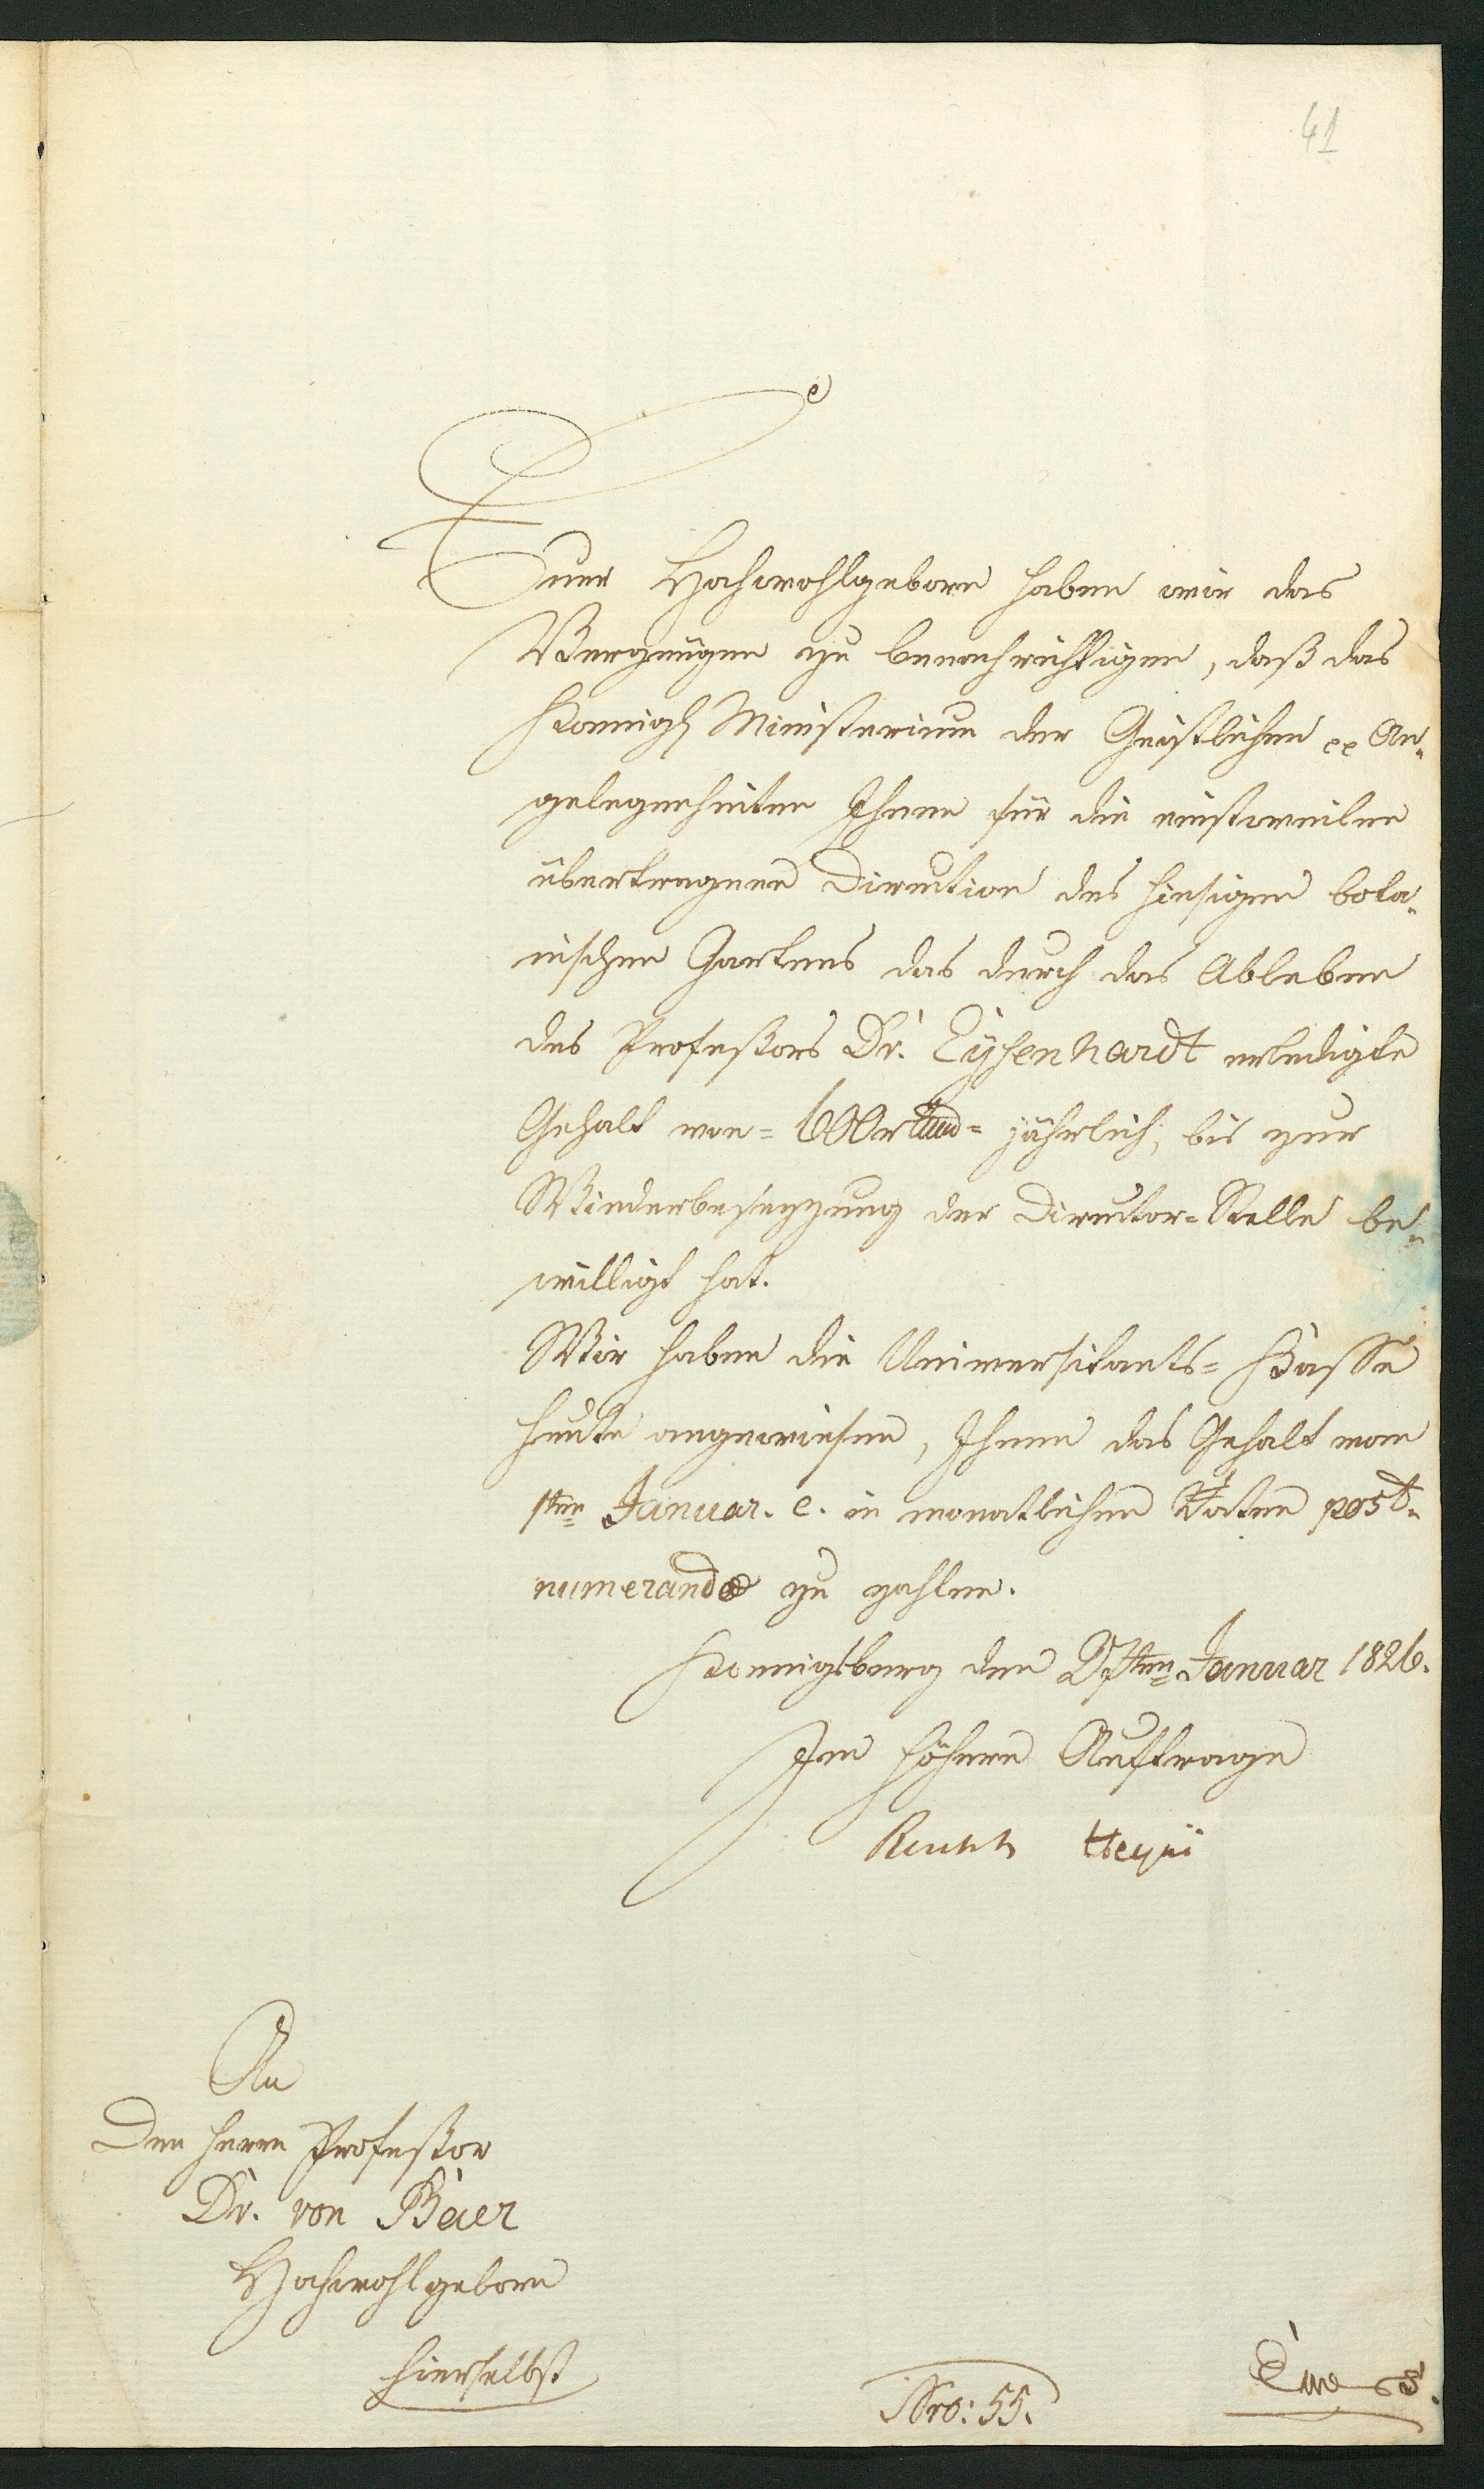 41
Euer Hochwohlgeborn haben wir das
Vergnügen zu benachrichtigen, daß das
Koenigl Ministerium der Geistlichen pp An-
gelegenheiten Ihnen für die einstweilen
übertragenen Direction des hiesigen bota-
nischen Gartens das durch das Ableben
des Profeßors Dr. Eysenhardt erledigte
Gehalt von = 600 = jährlich, bis zur
Wiederbesezzung der Director-Stelle be-
willigt hat.
Wir haben die Universitaets-Kasse
heute angewiesen, Ihnen das Gehalt vom
1ten Januar. c. in monatlichen Raten post-
numerando zu zahlen.
Koenigsberg den 27ten Januar 1826.
Im höhern Auftrage
An
Den Herrn Profeßor
Dr. von Baer
Hochwohlgeborn
hierselbst
Nro: 55.